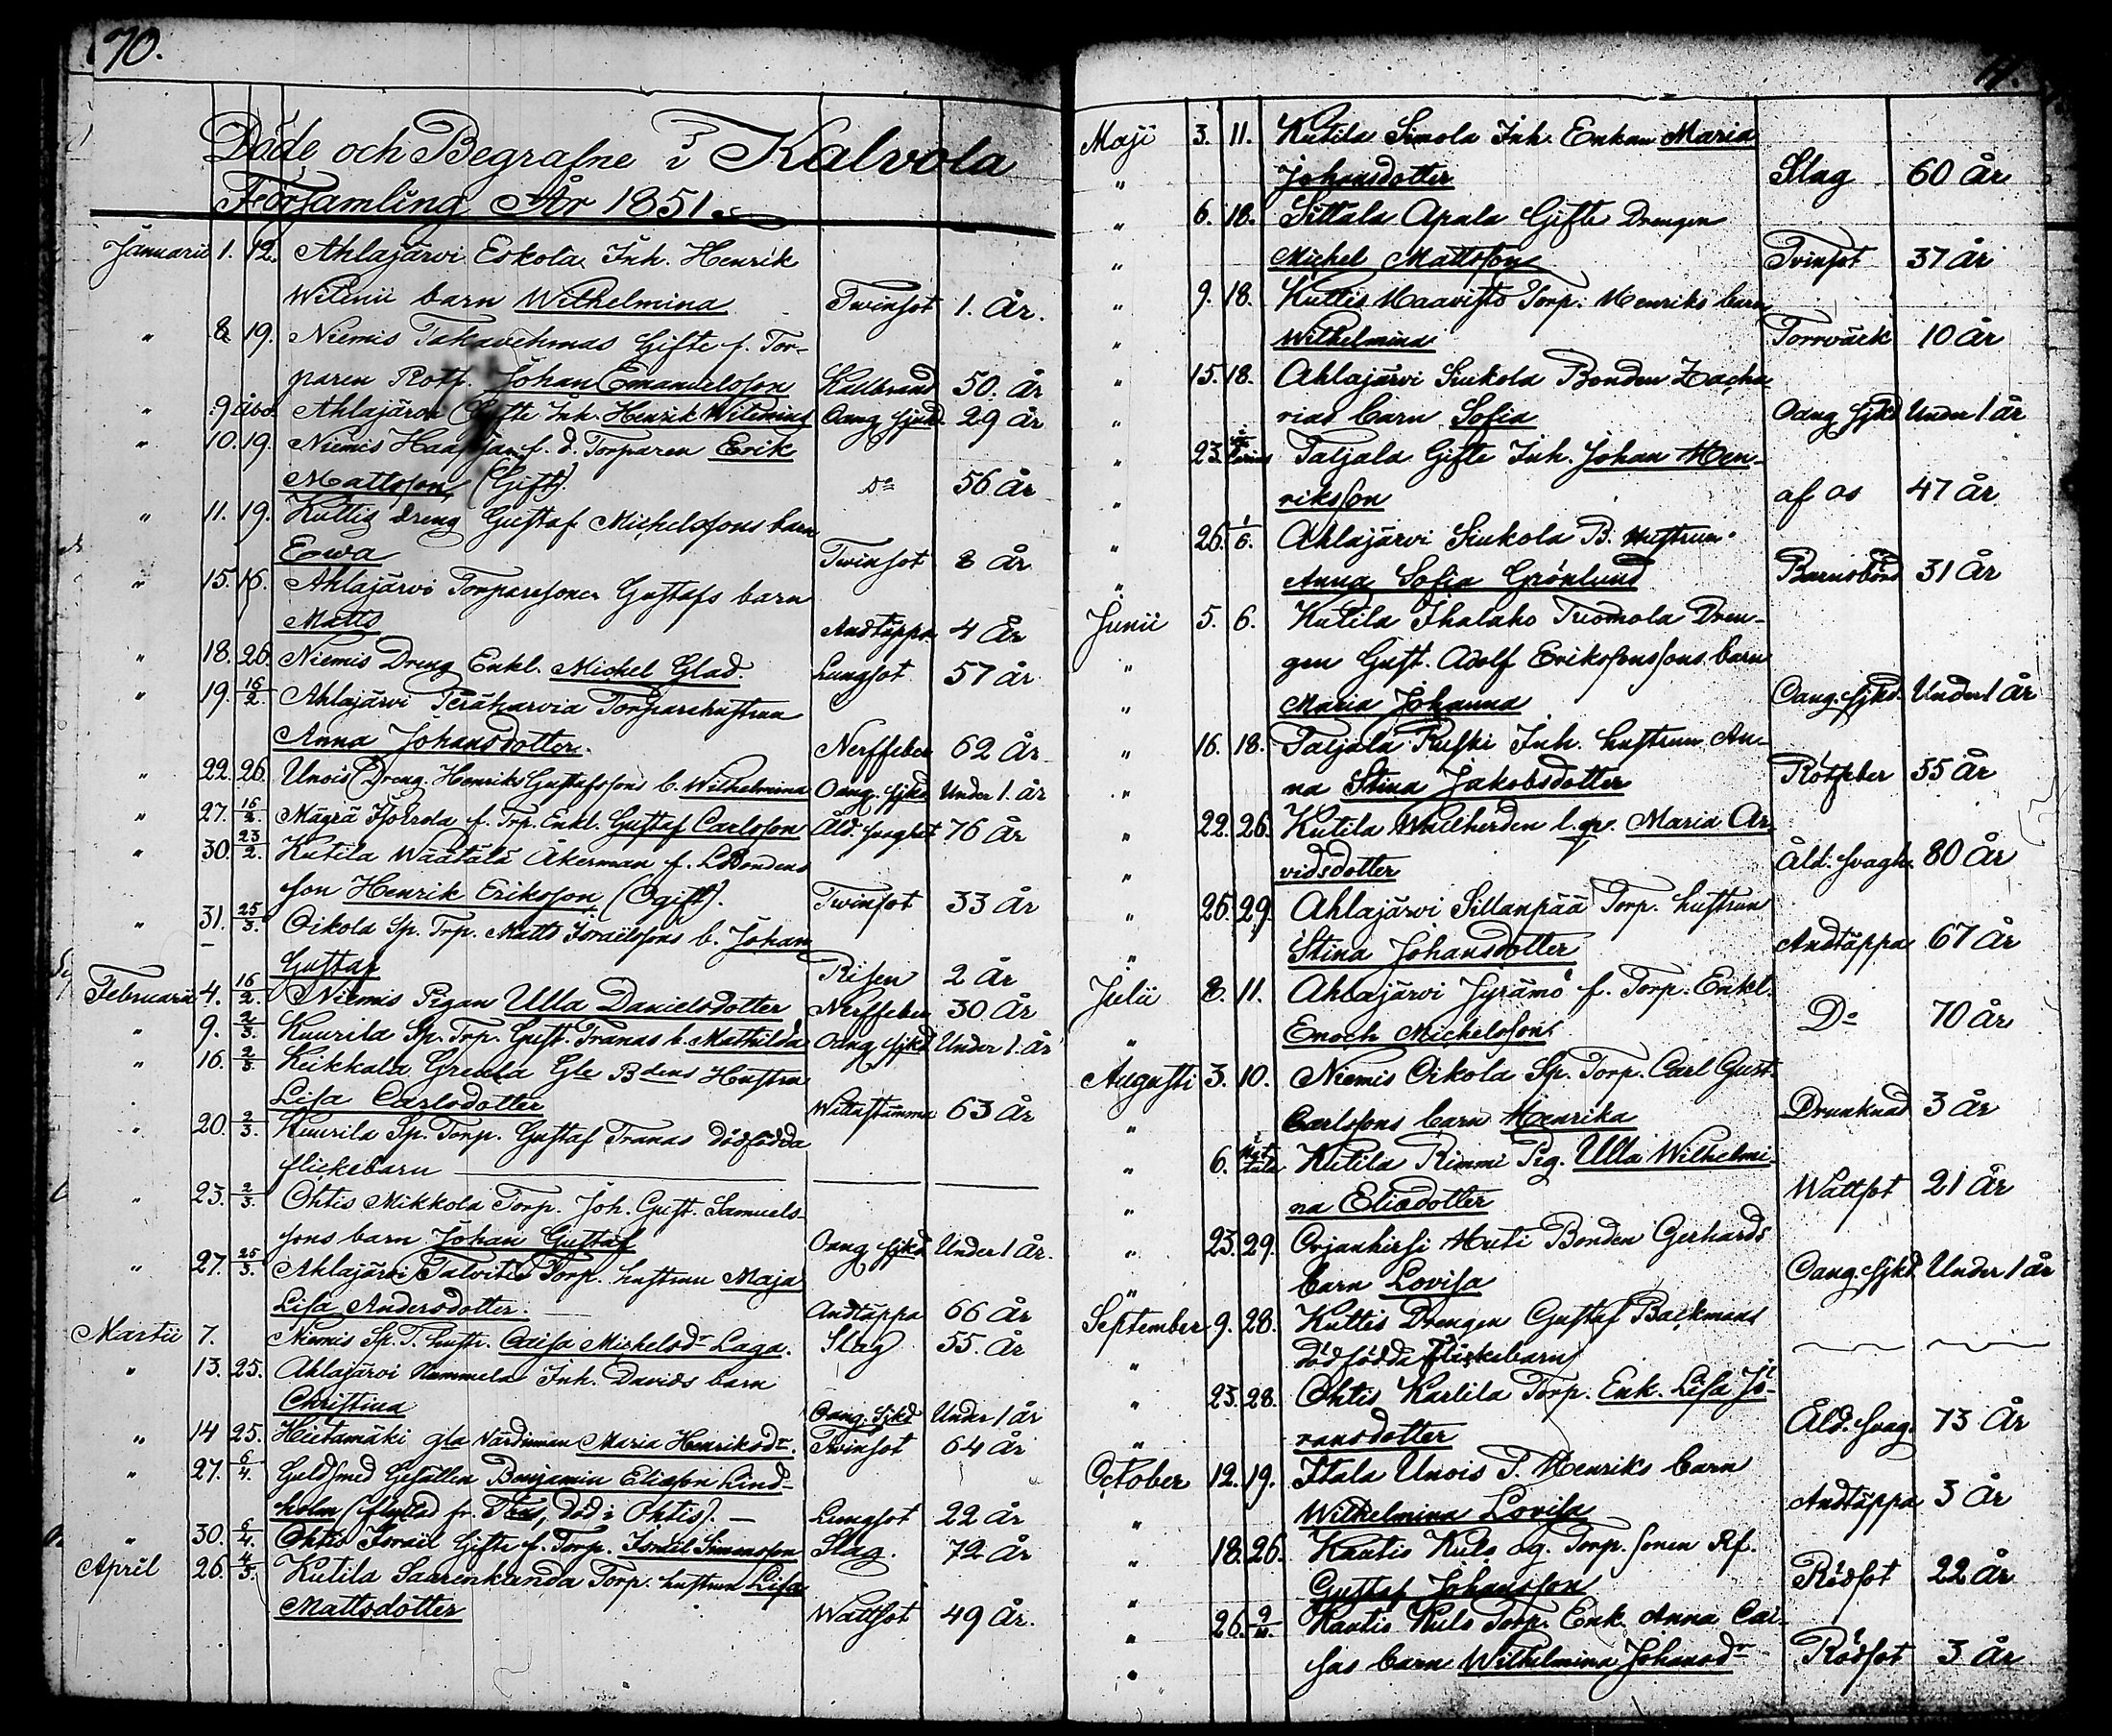 70.
Döde och Begrafne i Kalvola
Församling År 1851.
Januarii 1. 12. Ahlajärvi Eskola Inh. Henrik
Witenii barn Wilhelmina Twinsot 1. År.
" 8. 19. Niemis Takavehmas Gifte f. Tor-
paren Rotf. Johan Emanuelsson Kallbrand 50. år
" 9 Åbo. Ahlajärvi Gifte Inh. Henrik Witenius Oang sjukd 29 år
" 10. 19. Niemis f. d. Torparen Erik
Mattsson, (Gift). Do 56 år
" 11. 19. Kuttis dreng Gustaf Michelssons barn
Ewa Twinsot 8 år
" 15. 16. Ahlajärvi Torparesonen Gustafs barn
Matts Andtäppa 4 år
" 18. 26. Niemis Dreng Enkl. Michel Glad. Lungsot 57 år
" 19. 16/2. Ahlajärvi Peräharvia Torparehustrun
Anna Johansdotter. Nerffeber 62 år
" 22. 26. Unois Dreng. Henriks Gustafssons b. Wilhelmina Oang. sjkd Under 1. år
" 27. 16/2. Mägrä f. Trp. Enkl. Gustaf Carlsson Åld. svaghet 76 år
" 30. 23/2. Kutila Wäätälä Åkerman f. LBondens
son Henrik Eriksson (Ogift). Twinsot 33 år
" 31. 25/3. Oikola Sp. Trp. Matts Israilssons b. Johan
Gustaf Risen 2 år
Februarii 4. 16/2. Niemis Pigan Ulla Danielsdotter Nerffeber 30 år
" 9. 2/3. Kuurila Sp. Trp. Gust. Tranas b. Mathilda Oang sjkd Under 1. år
" 16. 2/3. Keikkala Greula Gle Bdens Hustru
Lisa Carlsdotter 63 år
" 20. 2/3. Kuurila Sp. Torp. Gustaf Tranas dödfödda
flickebarn
" 23. 2/3. Ohtis Mikkola Torp. Joh. Gust. Samuels-
sons barn Johan Gustaf Oang sjkd Under 1 år.
" 27. 25/3. Ahlajärvi Talvitie Torp. hustrun Maja
Lisa Andersdotter. Andtäppa 66 år
Martii 7. Niemis Sp. T. hustr. Caisa Michelsdr Laga. Slag 55. år
" 13. 25. Ahlajärvi Nammela Inh. Davids barn
Christina Oang. Sjkd Under 1 år
" 14 25. Hietamäki gla Värdinnan Maria Henriksdr. Twinsot 64 år
" 27. 6/4. Guldsmed Gesällen Benjamin Eliasson Lind-
holm (flyttad fr. död i Ohtis). Lungsot 22 år
" 30. 6/4. Ohtis Israil Gifte f. Torp. Israil Simonsson Slag. 72 år
April 26. 4/5. Kutila Saarenkanda Torp. hustrun Lisa
Mattsdotter Wattsot 49 år.
Maji 3. 11. Kutila Simola Inh. Enkan Maria
" Johansdotter Slag 60 år
" 6. 18. Sittala Apala Gifte Drengen
" Michel Mattsson Tvinsot 37 år
" 9. 18. Kuttis Haavisto Torp. Henriks barn
" Wilhelmina Torrvärk 10 år
" 15. 18. Ahlajärvi Siukola Bonden Zacha-
" rias barn Sofia Oang sjkd Under 1 år
" 23. Taljala Gifte Inh. Johan Hen-
" riksson af os 47 år
" 26. 1/6. Ahlajärvi Siukola B. Hustrun
" Anna Sofia Grönlund Barnsbörd 31 år
Junii 5. 6. Kutila Ihalaho Tuomola Dren-
" gen Gust. Adolf Erikssonssons barn
" Maria Johanna Oang. sjkd. Under 1 år
" 16. 18. Taljala Ruski Inh. hustrun An-
" na Stina Jakobsdotter Rötfeber 55 år
" 22. 26. Kutila Maria Ar-
" vidsdotter Åld. svagh. 80 år
" 26. 29. Ahlajärvi Sillanpää Torp. hustrun
" Stina Johansdotter Andtäppa 67 år
Julii 8. 11. Ahlajärvi Jyrämö f. Torp. Enkl.
" Enoch Michelsson Do 70 år
Augusti 3. 10. Niemis Oikola Sp. Torp. Carl Gust.
" Carlssons barn Henrika Drunknad 3 år
" 6. Kutila Rimmi Pig. Ulla Wilhelmi-
" na Eliedotter Wattsot 21 år
" 23. 29. Orjanhirsi Huti Bonden Gerhards
" barn Lovisa Oang. sjkd Under 1 år
September 9. 28. Kuttis Drengen Gustaf Backmans
" dödfödda flickebarn
" 23. 28. Ohtis Karlila Torp. Enk. Lisa Jö-
" ransdotter Åld. svag. 73 år
October 12. 19. Itala Unois T. Henriks barn
" Wilhelmina Lovisa Andtäppa 3 år
" 18. 26. Kautis Kulo og. Torp. sonen Rf.
" Gustaf Johansson Rödsot 22 år
" 26. 9/11. Kautis Kulo Torp. Enk. Anna Cai-
" sas barn Wilhelmina Johansdr Rödsot 3 år